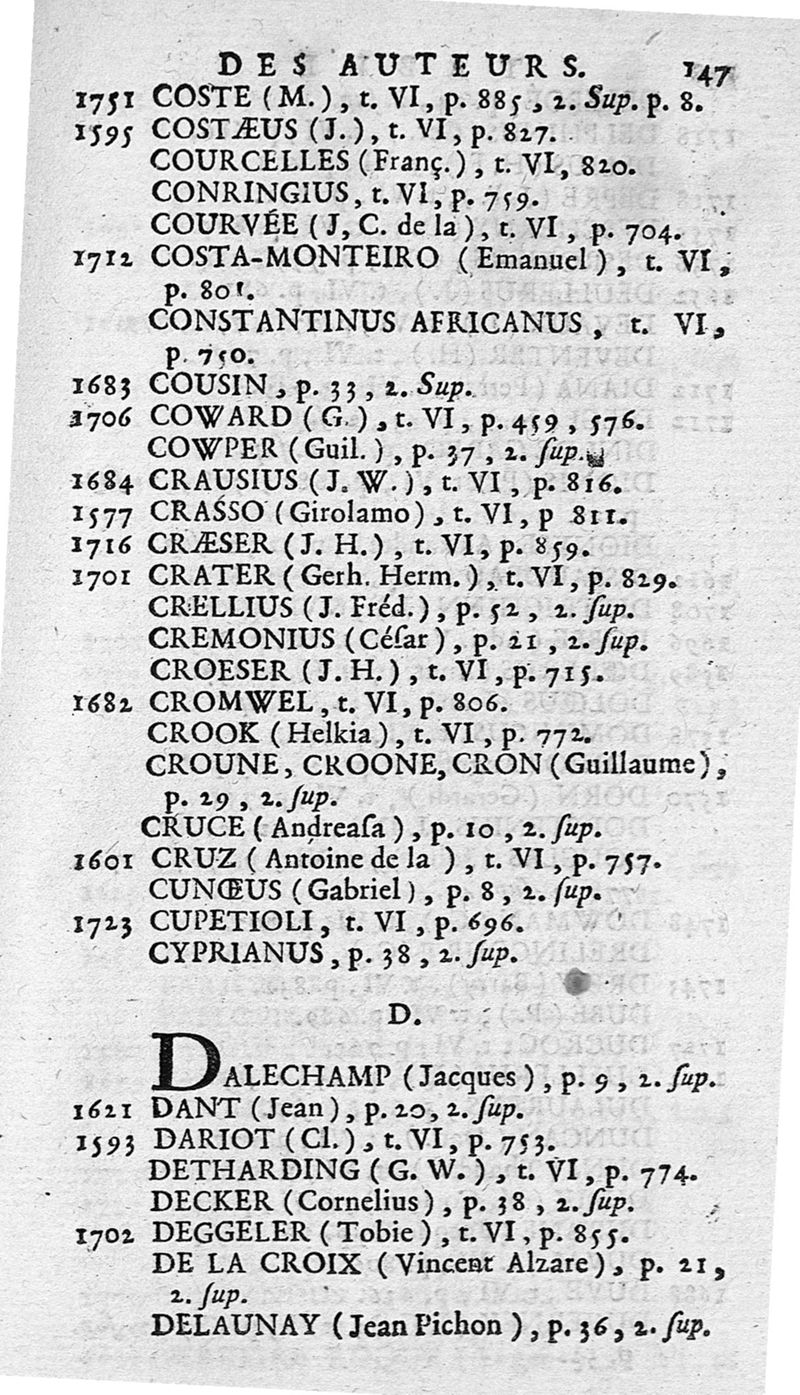 DES AUTEURS. 147
1751 COSTE (M.), t. VI, p. 885, 2. Sup. p. 8.
1595 COSTÆUS (J.), t. VI, p. 827.
COURCELLES (Franç.), t. VI, 820.
CONRINGIUS, t. VI, p. 759.
COURVÉE (J, C. de la), t. VI, p. 704.
1712 COSTA-MONTEIRO (Emanuel), t. VI,
p. 801.
CONSTANTINUS AFRICANUS, t. VI,
p. 750.
1683 COUSIN, p. 33, 2. Sup.
1706 COWARD (G.), t. VI, p. 459, 576.
COWPER (Guil.), p. 37, 2. ſup.
1684 CRAUSIUS (J. W.), t. VI, p. 816.
1577 CRASSO (Girolamo), t. VI, p 811.
1716 CRÆSER (J. H.), t. VI, p. 859.
1701 CRATER (Gerh. Herm.), t. VI, p. 829.
CRELLIUS (J. Fréd.), p. 52, 2. ſup.
CREMONIUS (Céſar), p. 21, 2. ſup.
CROESER (J. H.), t. VI, p. 715.
1682 CROMWEL, t. VI, p. 806.
CROOK (Helkia), t. VI, p. 772.
CROUNE, CROONE, CRON (Guillaume),
p. 29, 2. ſup.
CRUCE (Andreaſa), p. 10, 2. ſup.
1601 CRUZ (Antoine de la ), t. VI, p. 757.
CUNŒUS (Gabriel), p. 8, 2. ſup.
1723 CUPETIOLI, t. VI, p. 696.
CYPRIANUS, p. 38, 2. ſup.
D.
DALECHAMP (Jacques), p. 9, 2. ſup.
1621 DANT (Jean), p. 20, 2. ſup.
1593 DARIOT (Cl.), t. VI, p. 753.
DETHARDING (G. W.), t. VI, p. 774.
DECKER (Cornelius), p. 38, 2. ſup.
1702 DEGGELER (Tobie), t. VI, p. 855.
DE LA CROIX (Vincent Alzare), p. 21,
2. ſup.
DELAUNAY (Jean Pichon), p. 36, 2. ſup.